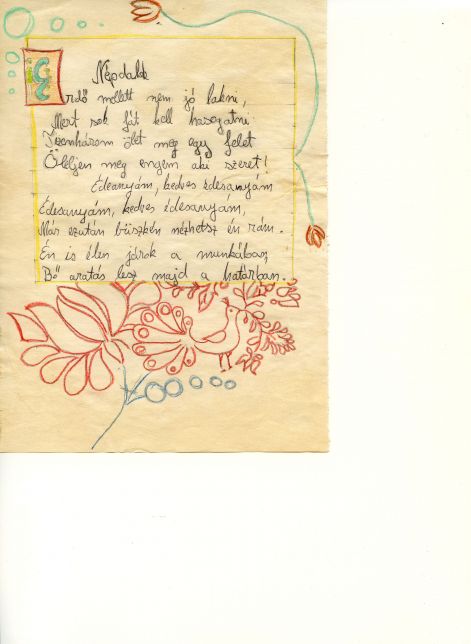 Népdalok
Erdő mellett nem jó lakni,
Mert sok fát kell hasogatni.
Tizenhárom ölet meg egy felet
Öleljen meg engem aki szeret!
Édeanyám, kedves édesanyám
Édesanyám, kedves édesanyám,
Már ezután büszkén nézhetsz én rám.
Én is élen járok a munkában,
Bő aratás lesz majd a határban.